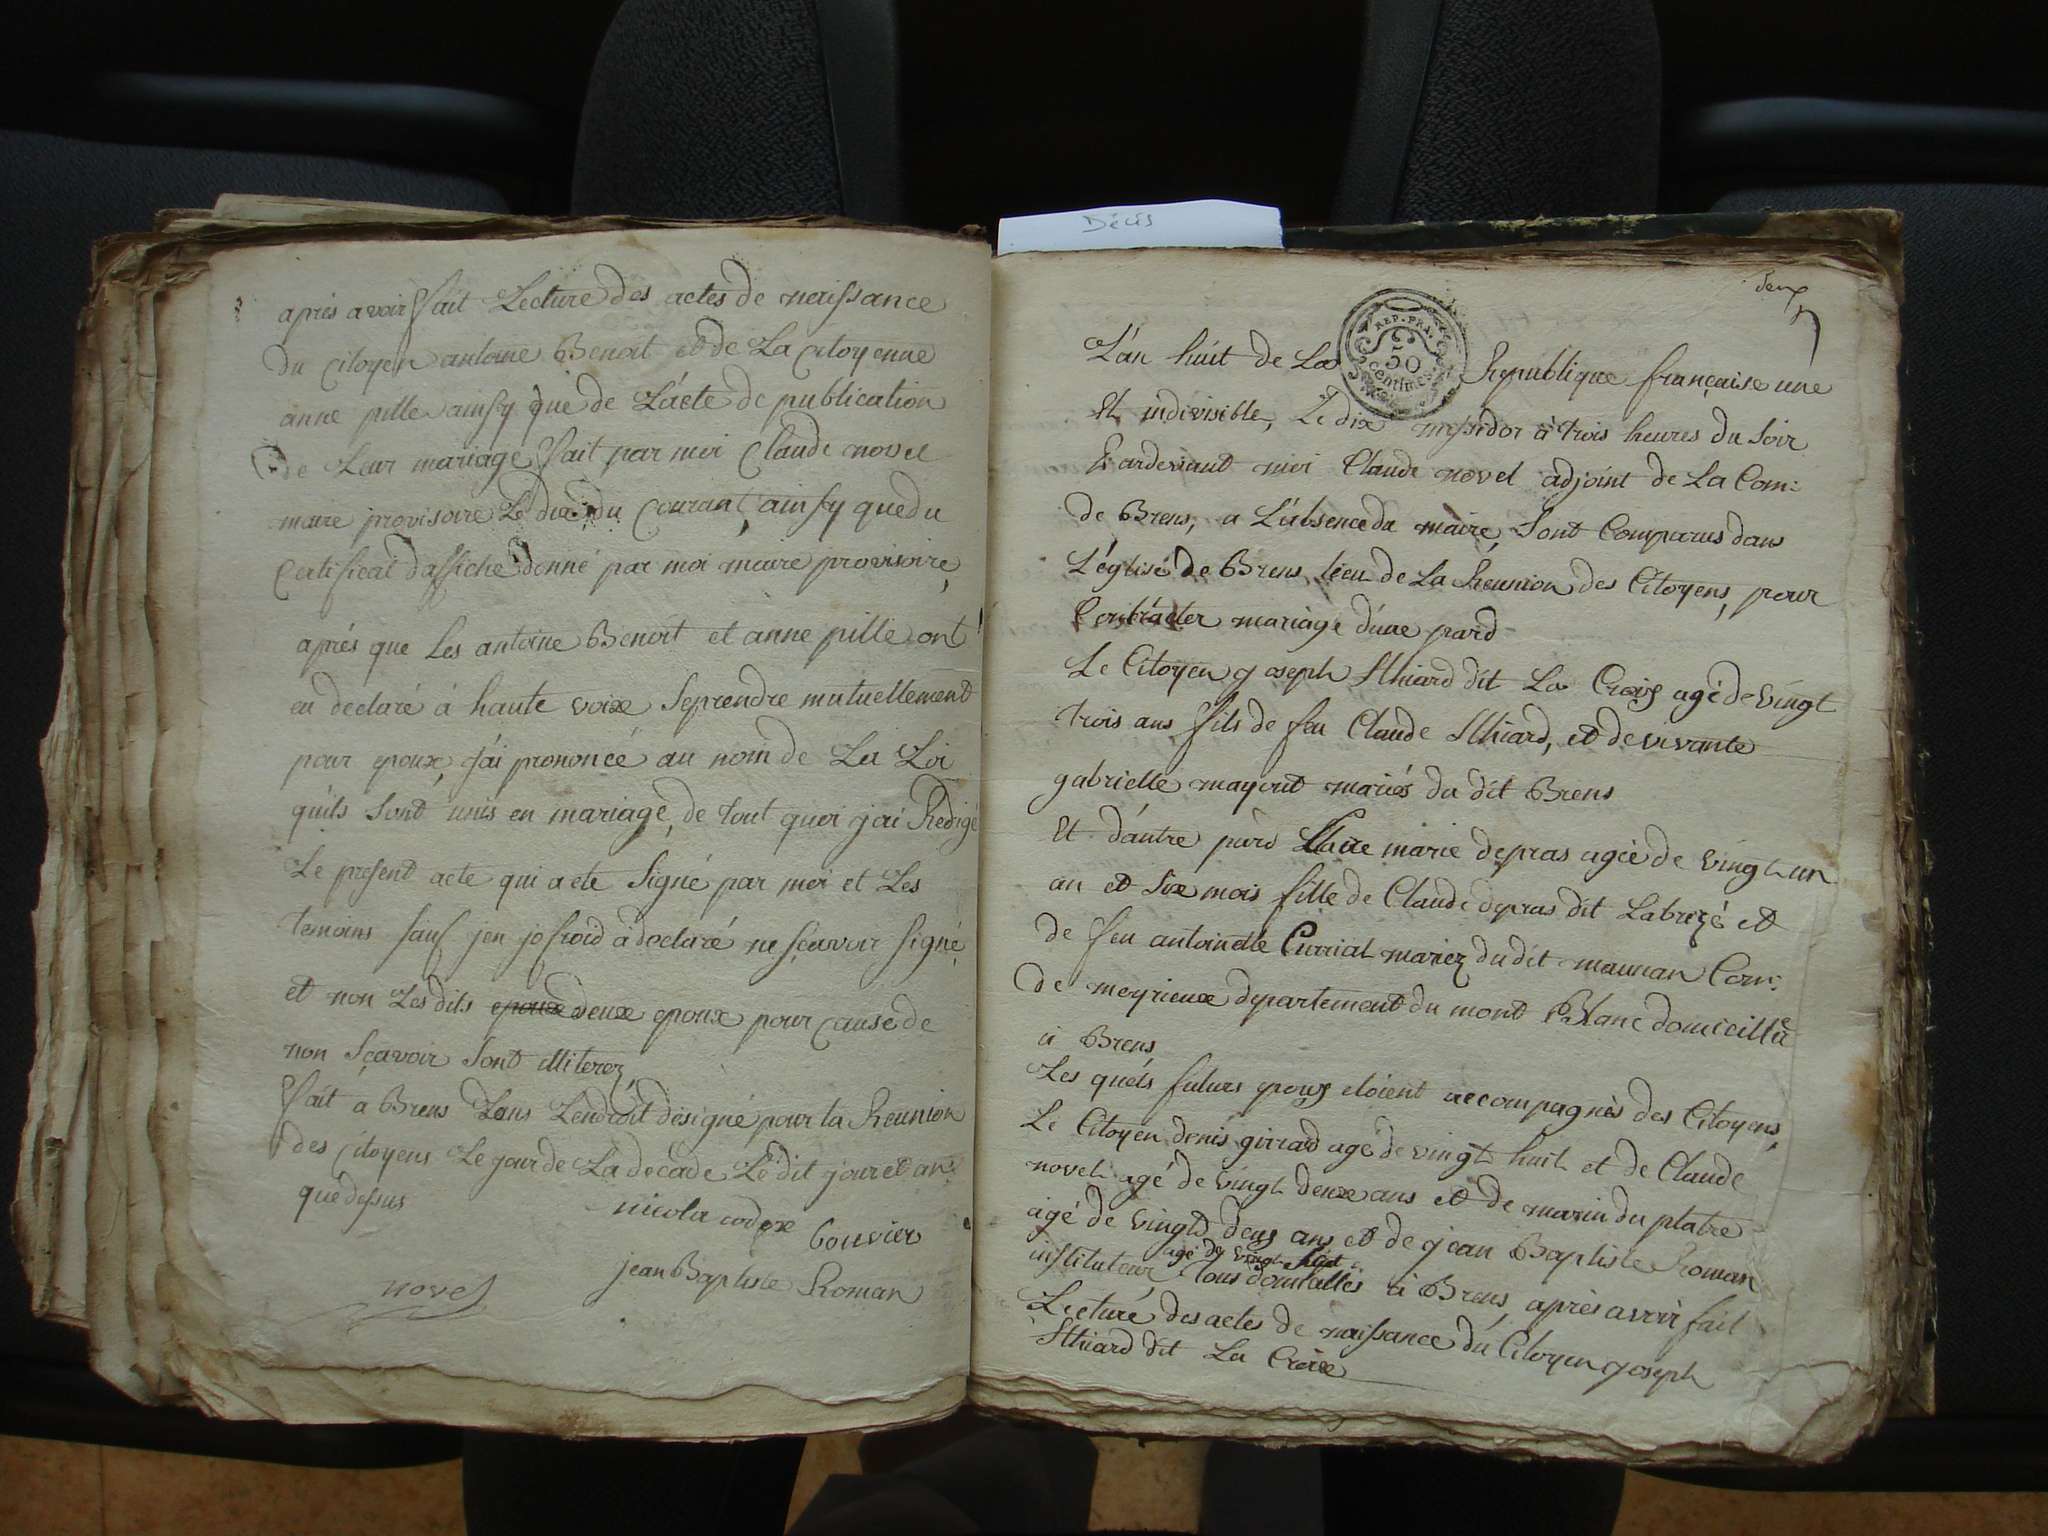 Décès
après avoir fait Lecture des actes de naissance
du citoyen antoine Benoit et de La citoyenne
anne pille ainsy que de L'acte de publication
de Leur mariage fait par moi Claude novel
maire provisoire Le dix du Courant, ainsy que du
Certificat d'affiche donné par moi maire provisoire,
après que Les antoine Benoit et anne pille ont
eu declaré à haute voix se prendre mutuellement
pour epoux, j'ai prononcé au nom de La Loi
qu'ils sont unis en mariage, de tout quoi j'ai Redigé
Le present acte qui a ete signé par moi et Les
temoins sauf jen jofroid a declaré ne sçavoir signé,
et non Les dits epoux deux epoux pour cause de
non sçavoir sont illiterez,
fait a Brens dans L'endroit désigné pour la Reunion
des citoyens Le jour de La decade Le dit jour et an
que dessus
nicola codex bouvier
jean Baptiste Roman
novel
deux
L'an huit de La Republique française une
REP. FRA.
50
centimes
Et indivisible, Le dix messidor à trois heures du soir
Pardevant moi Claude novel adjoint de La Com:
de Brens, a L'absence du maire, sont Comparus dans
L'église de Brens, lieu de La Reunion des Citoyens, pour
Contracter mariage d'une pard
Le Citoyen joseph Sthiard dit La Croix agé de vingt
trois ans fils de feu Claude Sthiard, et de vivante
gabrielle mayout mariés du dit Brens
Et d'autre pard marie depras agée de vingt un
an et six mois fille de Claude depras dit Labrezé et
de feu antoinette Curriat mariez du dit maunan Com:
de meyrieux departement du mont Blanc domicillée
à Brens
Les quels futurs epoux etoient accompagnès des Citoyens,
Le Citoyen denis girrad agé de vingt huit et de Claude
novel agé de vingt deux ans et de marin du platre
agé de vingt deux ans et de jean Baptiste Roman
agé de vingt huit
instituteur tous domicillés à Brens, après avoir fait
Lecture des actes de naissance du Citoyen joseph
Sthiard dit La Croix